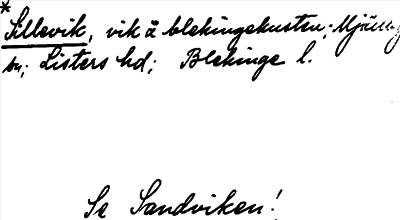 * Sillevik, vik å blekingekusten; Mjällby
sn; Listers hd; Blekinge l.
Se Sandviken!